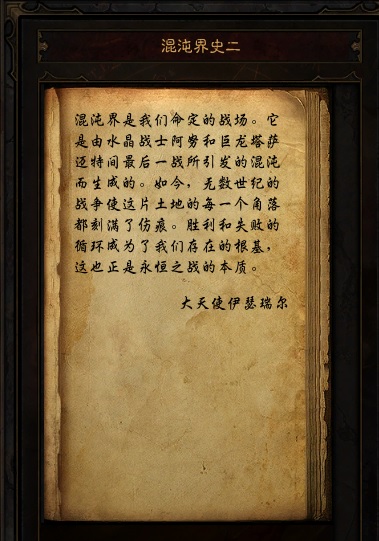 混沌界史二
混沌界是我们命定的战场。它
是由水晶战士阿努和巨龙塔萨
迈特间最后一战所引发的混沌
而生成的。如今，无数世纪的
战争使这片土地的每一个角落
都刻满了伤痕。胜利和失败的
循环成为了我们存在的根基，
这也正是永恒之战的本质。
大天使伊瑟瑞尔